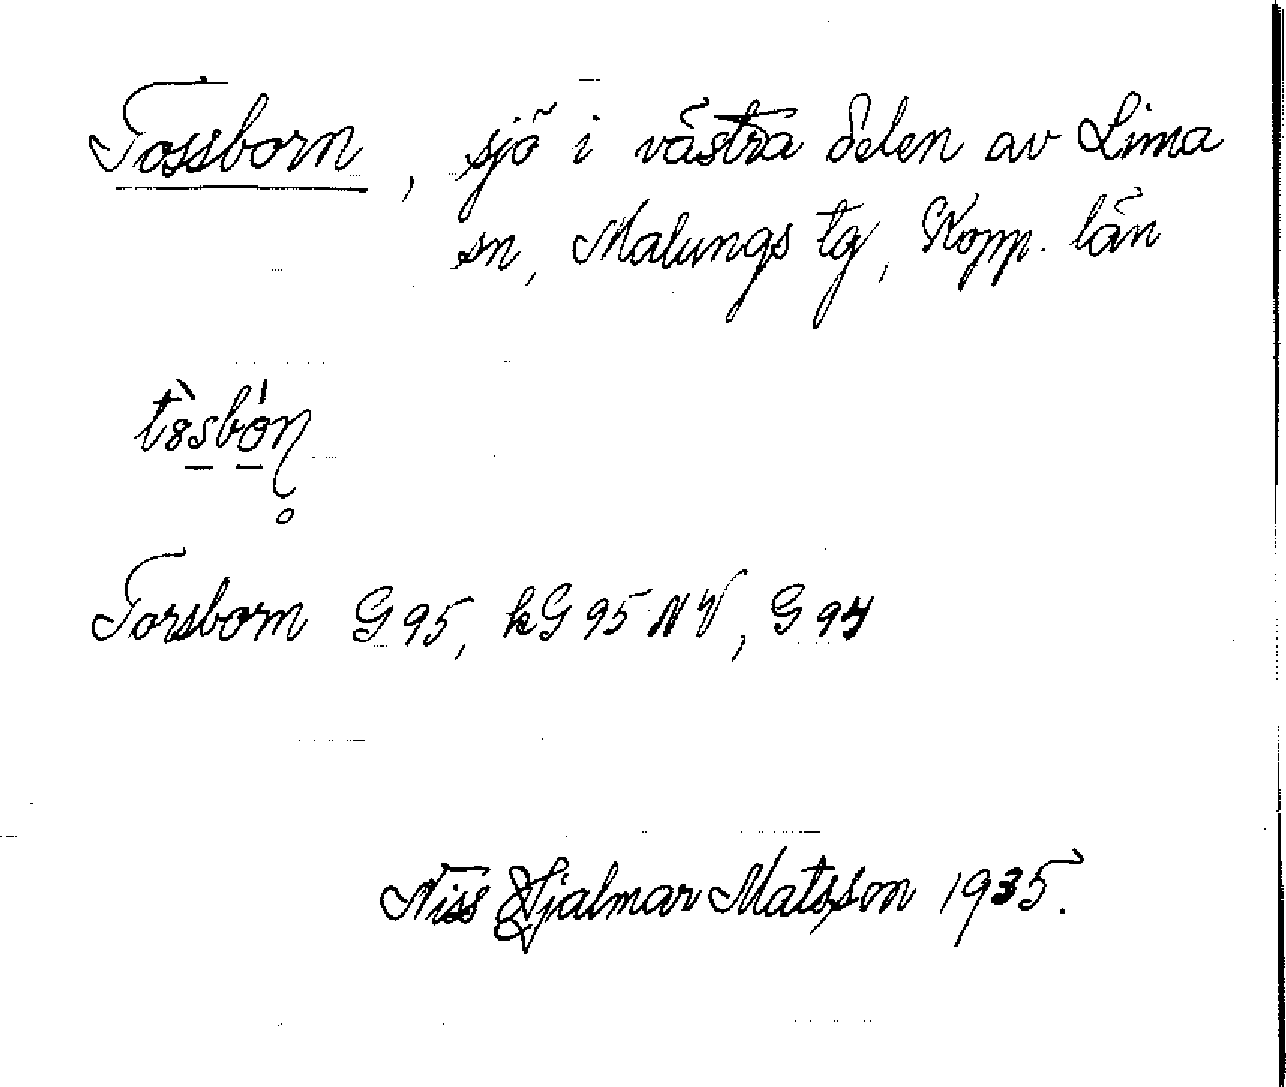 Tossborn, sjö i västra delen av Lima
sn, Malungs tg, Kopp. län
Torsborn G 95, kG 95 NV, G 94
Niss Hjalmar Matsson 1935.